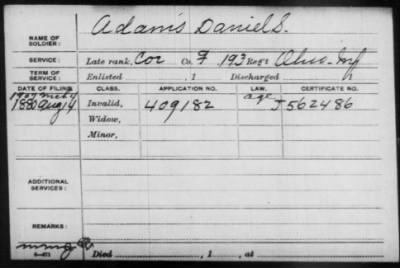 NAME OF SOLDIER: Adams Daniel S.
SERVICE: Late rank, Cor Co. F 193 Reg't Ohio Inf
TERM OF SERVICE: Enlisted , 1 Discharged , 1
DATE OF FILING. CLASS. APPLICATION NO. LAW. CERTIFICATE NO.
1907
1880 Aug 14 Invalid, 409182 age J 562486
Widow,
Minor,
ADDITIONAL SERVICES:
REMARKS:
Died , 1 , at